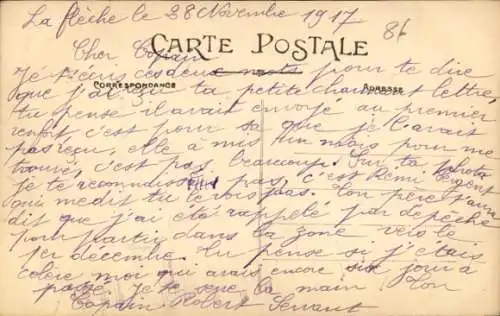 La flèche le 28 Novembre 1917
86
Cher Copain
CARTE POSTALE
Je t'écris ces deux mots pour te dire
CORRESPONDANCE
ADRESSE
que j'ai reçu ta petite charmant lettre,
tu pense il avait envoyé au premier
renfort c'est pour sa que je l'avait
pas reçu, elle a mis un mois pour me
trouvé, c'est pas beaucoup. Sur ta photo
je te reconnaissait pas, c'est Rémi
qui me dit tu te vois pas. Ton père t'aura
dit que j'ai été rappelé par depêche
pour partir dans la zone vers le
1er décembre. Tu pense si j'étais
colère moi qui avais encore six jour à
passé. Je te serre la main Ton
Copain Robert Servant